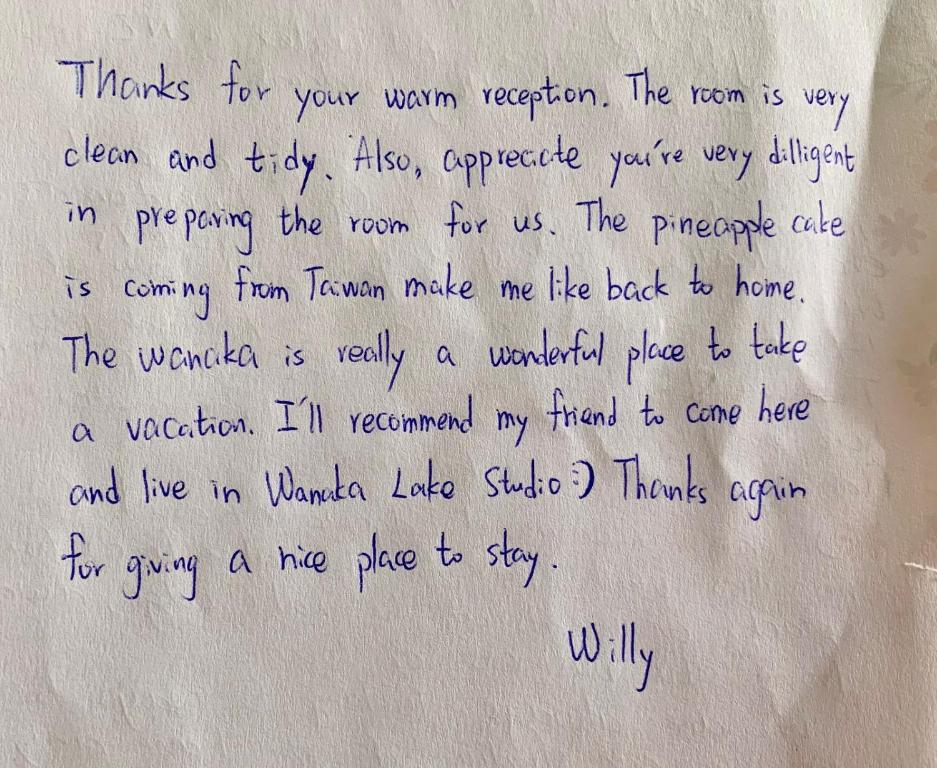 Thanks for your warm reception. The room is very
clean and tidy. Also, appreciate you're very dilligent
in preparing the room for us. The pineapple cake
is coming from Taiwan make me like back to home.
The wanaka is really a wonderful place to take
a vacation. I'll recommend my friend to come here
and live in Wanaka Lake Studio :) Thanks again
for giving a nice place to stay.
Willy